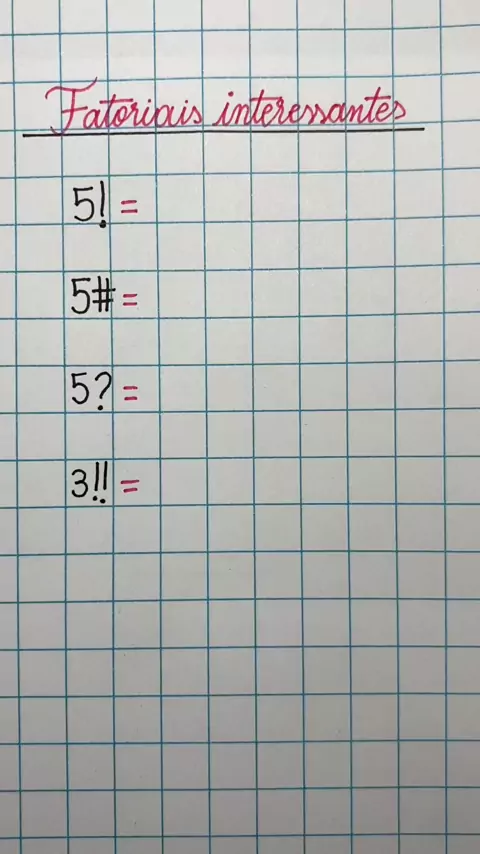 Fatoriais interessantes
5! =
5# =
5? =
3!! =